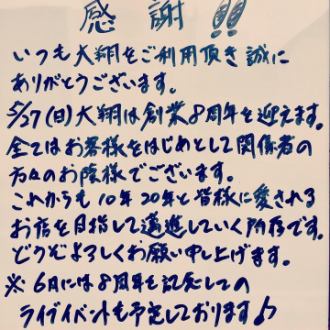 感謝!!
いつも大翔をご利用頂き誠に
ありがとうございます。
5/27(日)大翔は創業8周年を迎えます。
全てはお客様をはじめとして関係者の
方々のお陰様でございます。
これからも10年20年と皆様に愛される
お店を目指して邁進していく所存です。
どうぞよろしくお願い申し上げます。
※6月には8周年を記念しての
ライブイベントも予定しております♪